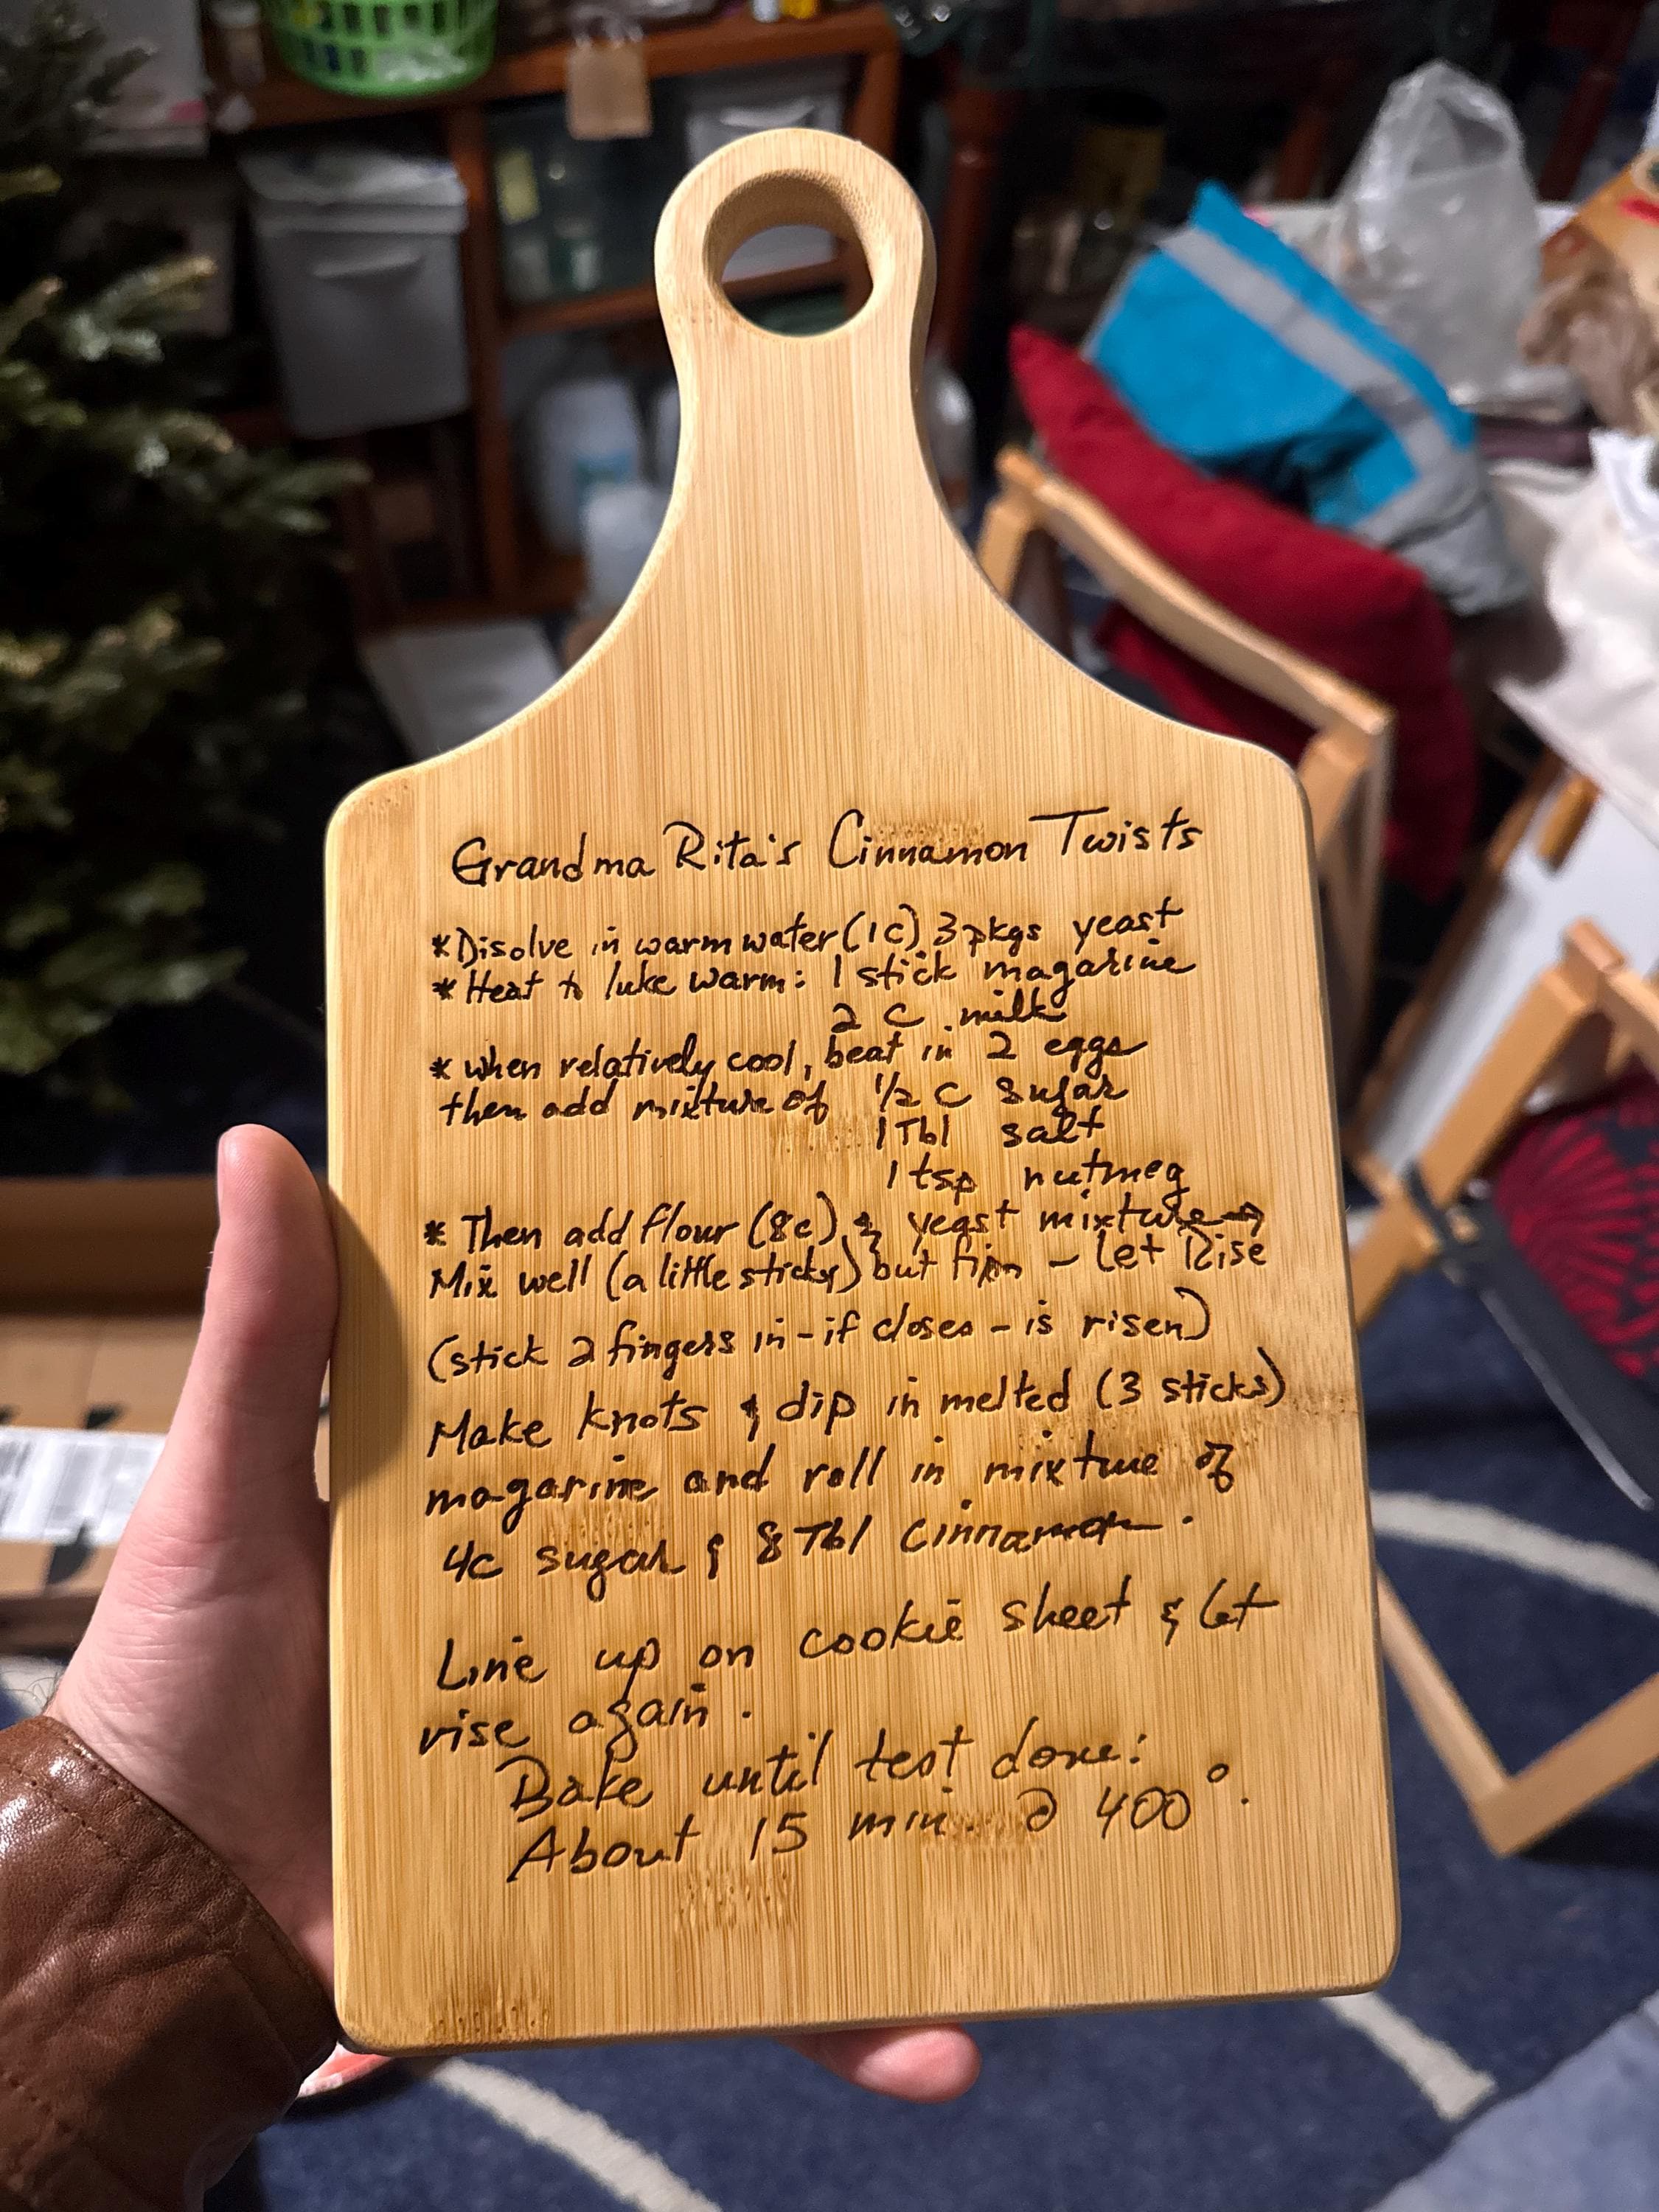 Grandma Rita's Cinnamon Twists
*Disolve in warm water (1c) 3 pkgs yeast
*Heat to luke warm: 1 stick magarine
2 C milk
* when relatively cool, beat in 2 eggs
then add mixture of 1/2 C sugar
1 Tbl salt
1 tsp nutmeg
* Then add flour (8c) & yeast mixture →
Mix well (a little sticky) but firm - Let Rise
(stick 2 fingers in - if closes - is risen)
Make knots & dip in melted (3 sticks)
magarine and roll in mixture of
4c sugar & 8 Tbl cinnamon.
Line up on cookie sheet & let
rise again.
Bake until test done:
About 15 min. @ 400°.